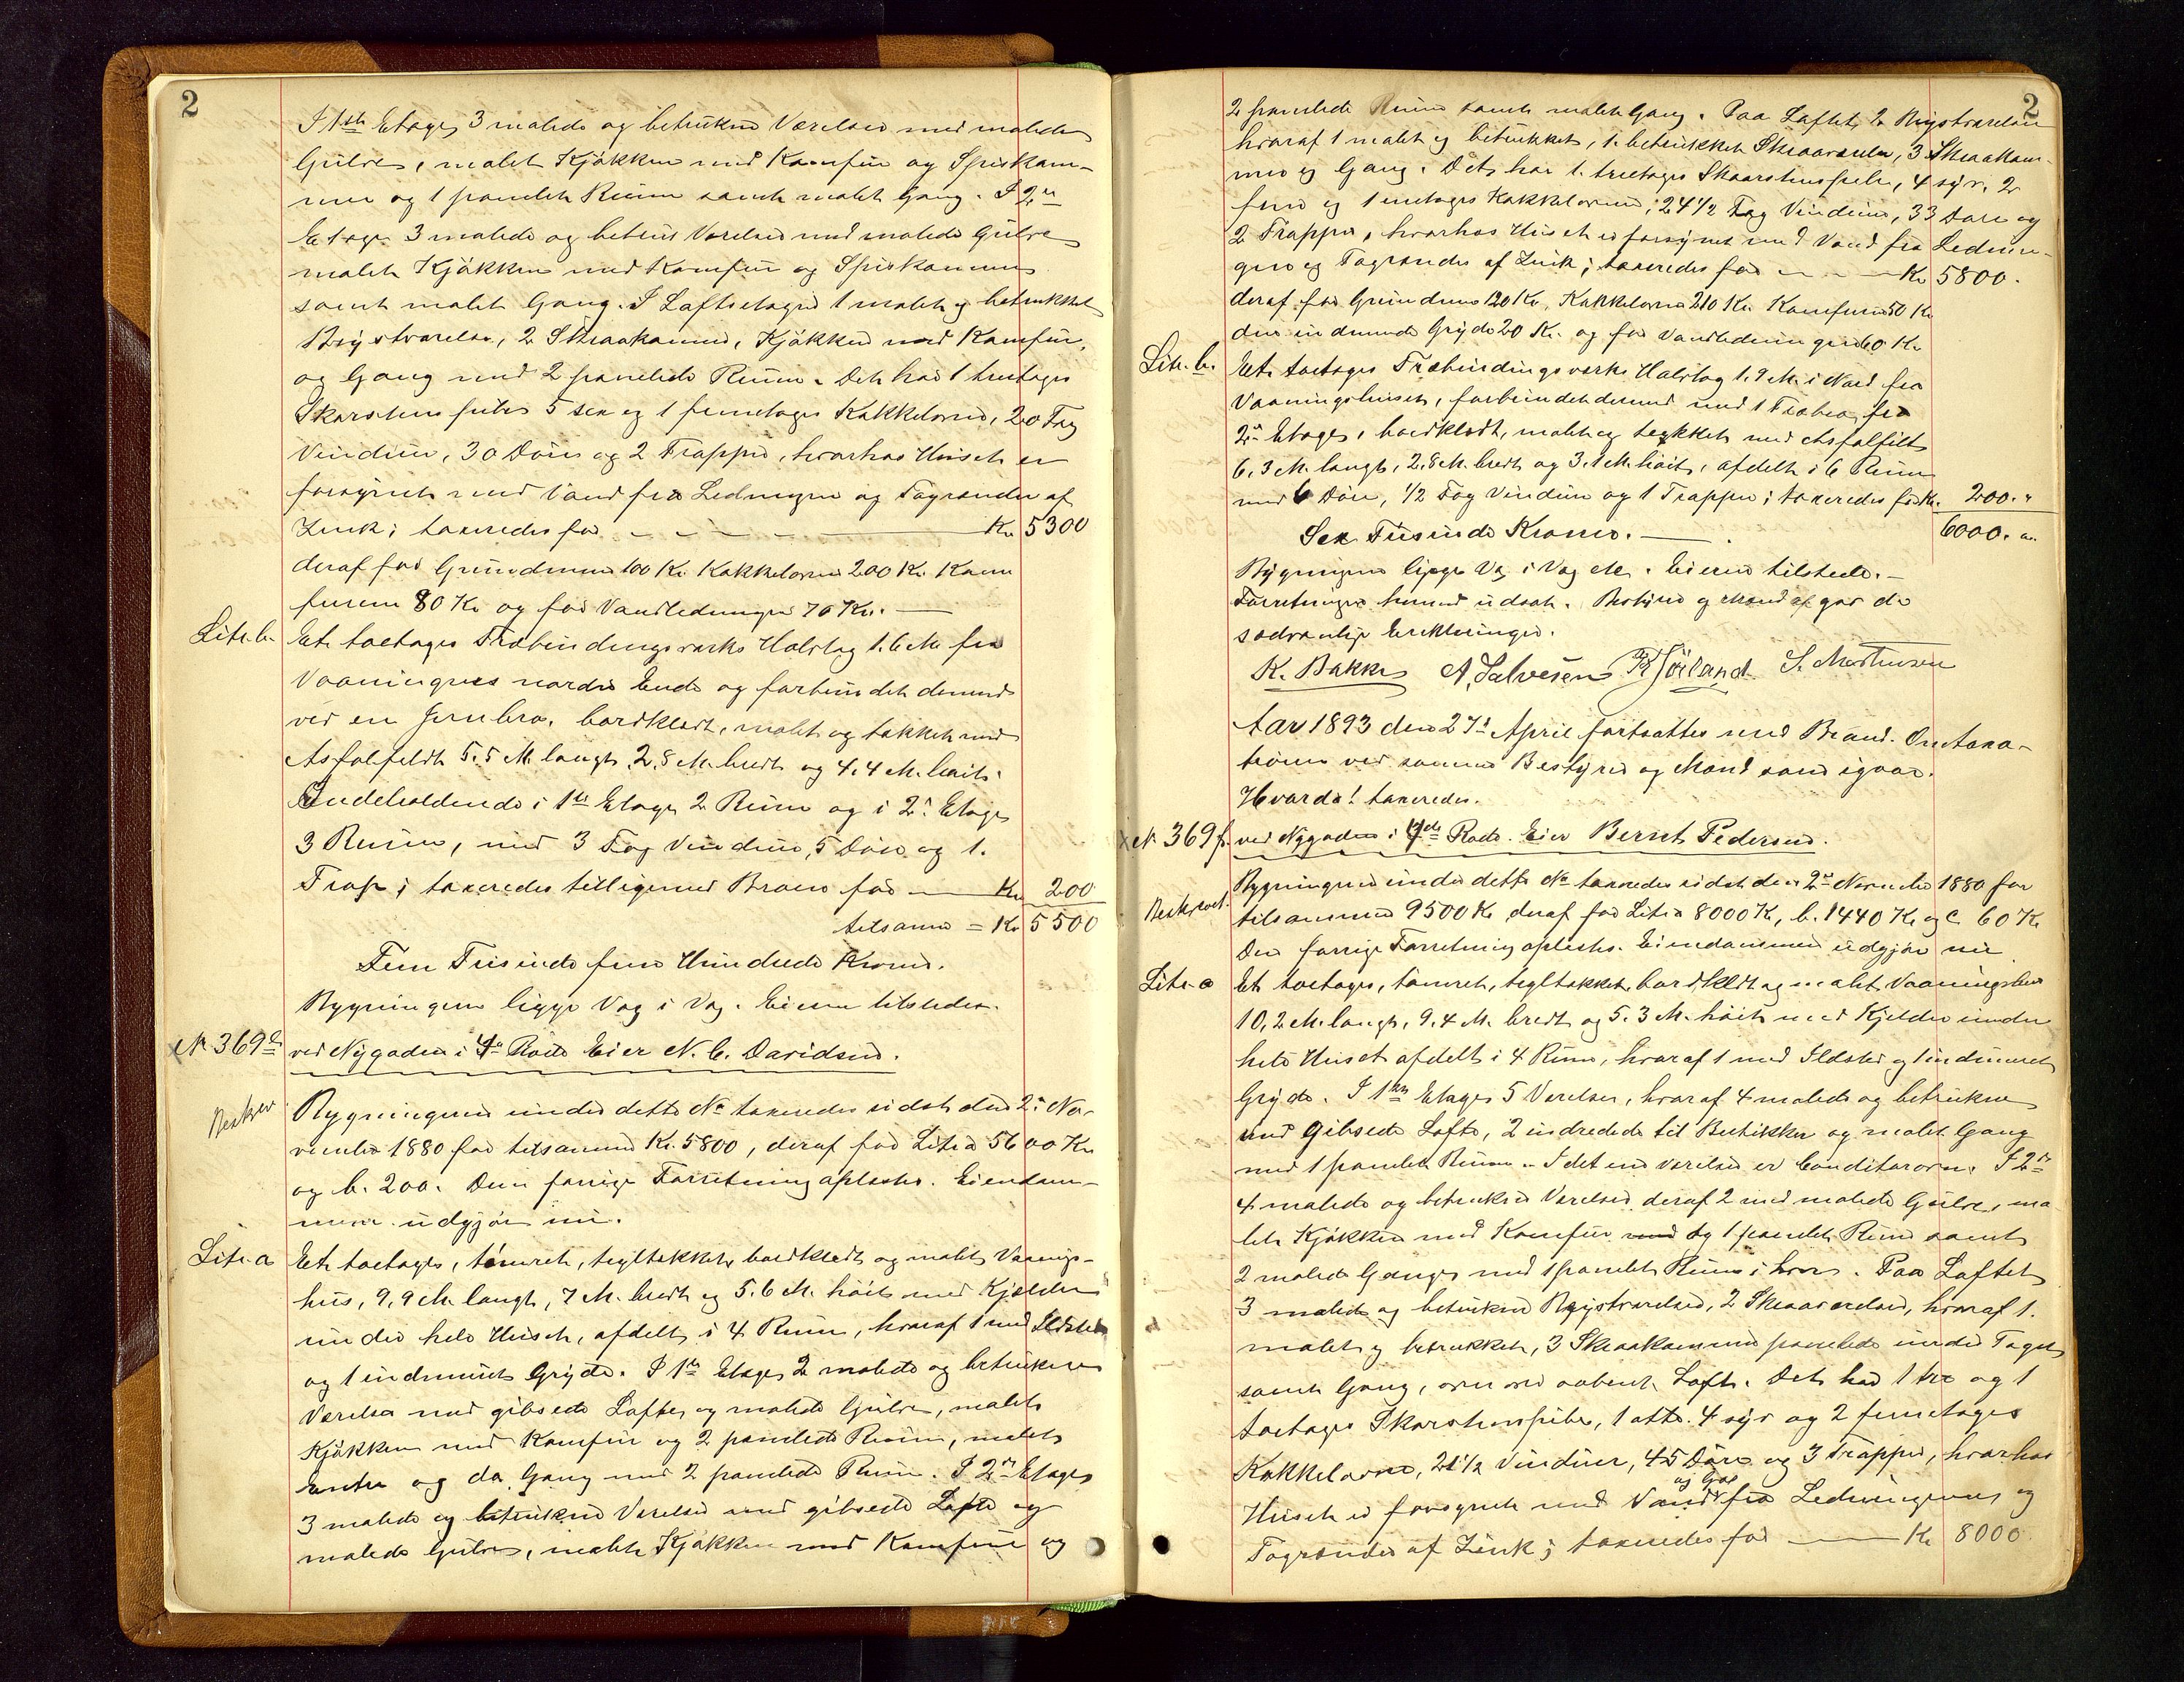 2
I 1ste Etage 3 malede og betrukne Værelser med malede
Gulve, malet Kjøkken med Komfur og Spiskam-
mer og 1 panelet Rum samt malet Gang. I 2en
Etage 3 malede og betrus Værelser med malede Gulve
malet Kjøkken med Komfur og Spiskammer
samt malet Gang. I Loftsetagen 1 malet og betrukket
Brystværelse, 2 Skraakamre, Kjøkken med Komfur,
og Gang med 2 panelede Rum. Det har 1 treetages
Skorstenspibe 5 sex og 1 femetages Kakkelovne, 20 Fag
Vinduer, 30 Døre og 2 Trapper, hvorhos Huset er
forsynet med Vand fra Ledningen og Tagrender af
Zink; taxeredes for Kr 5300
deraf for Grundmur 100 Kr Kakkelovne 200 Kr Kom
furene 80 Kr og for Vandledningen 70 Kr.
Litr. b. Et toetages Træbindingsværks Halvtag 1.6 M. fra
Vaaningens nordre Ende og forbundet dermed
ved en Jernbro, bordklædt, malet og tækket med
Asfalfeldt 5.5 M. langt 2.8 M. bredt og 4.4 M. høit.
Indeholdende i 1ste Etage 2 Rum og i 2n Etage
3 Rum, med 3 Fag Vinduer, 5 Døre og 1.
Trap; taxeredes tilligemed Broen for Kr 200
tilsamm = Kr 5500
Fem Tusinde fem Hundrede Kroner.
Bygningen ligge Væg i Væg. Eieren tilstede.
No 369e ved Nygaden i 4de Rode Eier N. C. Davidsen.
Beskrev Bygningerne under dette No taxeredes sidst den 2n No-
vember 1880 for tilsammen Kr. 5800, deraf for Litr. a 5600 Kr
og b. 200. Den forrige Forretning oplæstes. Eiendom-
men udgjør nu.
Litr. a Et toetages, tømret, tegltækket, bordklædt og malet Vaanings-
hus, 9,9 M. langt, 7 M. bredt og 5.6 M. høit med Kjelder
under hele Huset, afdelt i 4 Rum, hvoraf 1 med Ildsted
og 1 indmuret Gryde. I 1te Etage 2 malede og betrukne
Værelser med gibsede Lofter og malede Gulve, malet
Kjøkken med Komfur og 2 panelede Rum, malet
Entre og do. Gang med 2 panelede Rum. I 2n Etage
3 malede og betrukne Værelser med gibsede Lofte og
malede Gulve, malet Kjøkken med Komfur og
2
2 panelede Rum samt malet Gang. Paa Loftet 2 Brystværelser
hvoraf 1 malet og betrukket, 1 betrukket Skraaværelse, 3 Skraakam-
mer og Gang. Det har 1. treetages Skaarstenspibe, 4 syv, 2
fem og 1 enetages Kakkelovne, 24 1/2 Fag Vinduer, 33 Døre og
2 Trapper, hvorhos Huset er forsynet med Vand fra Lednin-
gen og Tagrender af Zink; taxeredes for Kr 5800.
deraf for Grundmur 120 Kr, Kakkelovne 210 Kr. Komfuren 50 Kr
den indmurede Gryde 20 Kr. og for Vandledningen 60 Kr
Litr. b. Et toetages Træbindingsværks Halvtag 1.9 M. i Nord fra
Vaaningshuset, forbundet dermed med 1 Træbro fra
2n Etage, bordklædt, malet og tækket med Asfalfilt
6.3 M. langt, 2.8 M. bredt og 3.1 M. høit, afdelt i 6 Rum
med 6 Døre, 1/2 Fag Vindue og 1 Trappe; taxeredes for Kr. 200. "
Sex Tusinde Kroner. 6000. "
Bygningerne ligge Væg i Væg etc. Eieren tilstede.
Forretningen hermed udsat. Bestyrer og Mænd afgav de
sædvanlige Erklæringer.
K. Bakke A. Salvesen K Tjørland S. Marthinsen
Aar 1893 den 27d April fortsattes med Brand-Omtaxa-
tionen ved samme Bestyrer og Mænd som igaar.
Hvorda! taxeredes.
No 369f. ved Nygaden i 4de Rode. Eier Bernt Pedersen.
Beskrevet. Bygningerne under dette No taxeredes sidst den 2n November 1880 for
tilsammen 9500 Kr deraf for Litr a 8000 K, b. 1440 Kr og c 60 Kr
Den forrige Forretning oplæstes. Eiendommen udgjør nu
Litr. a Et toetages, tømret, tegltækket, bordklædt og malet Vaaningshus
10,2 M. langt, 9.4 M. bredt og 5.3 M. høit med Kjelder under
hele Huset afdelt i 4 Rum, hvoraf 1 med Ildsted og 1 indmuret
Gryde. I 1ste Etage 5 Værelser, hvoraf 4 malede og betrukne
med Gibsede Lofte, 2 indredede til Butikker og malet Gang
med 1 panelet Rum. I det ene Værelse er Conditorovn. I 2n
4 malede og betrukne Værelser deraf 2 med malede Gulve, ma
let Kjøkken med Komfur og 1 panelet Rum samt
2 malede Gange med 1 panelet Rum i hver. Paa Loftet
3 malede og betrukne Brystværelser, 2 Skraaværelser, hvoraf 1.
malet og betrukket, 3 Skraakammer panelede under Taget
samt Gang, over aabent Loft. Det har 1 tre og 1
toetages Skorstenspibe, 1 otte. 4 syv og 2 femetages
Kakkelovne, 21 1/2 Vinduer, 45 Døre og 3 Trapper, hvorhos
Huset er forsynet med Vand og Gas fra Ledningerne og
Tagrender af Zink; taxeredes for Kr 8000